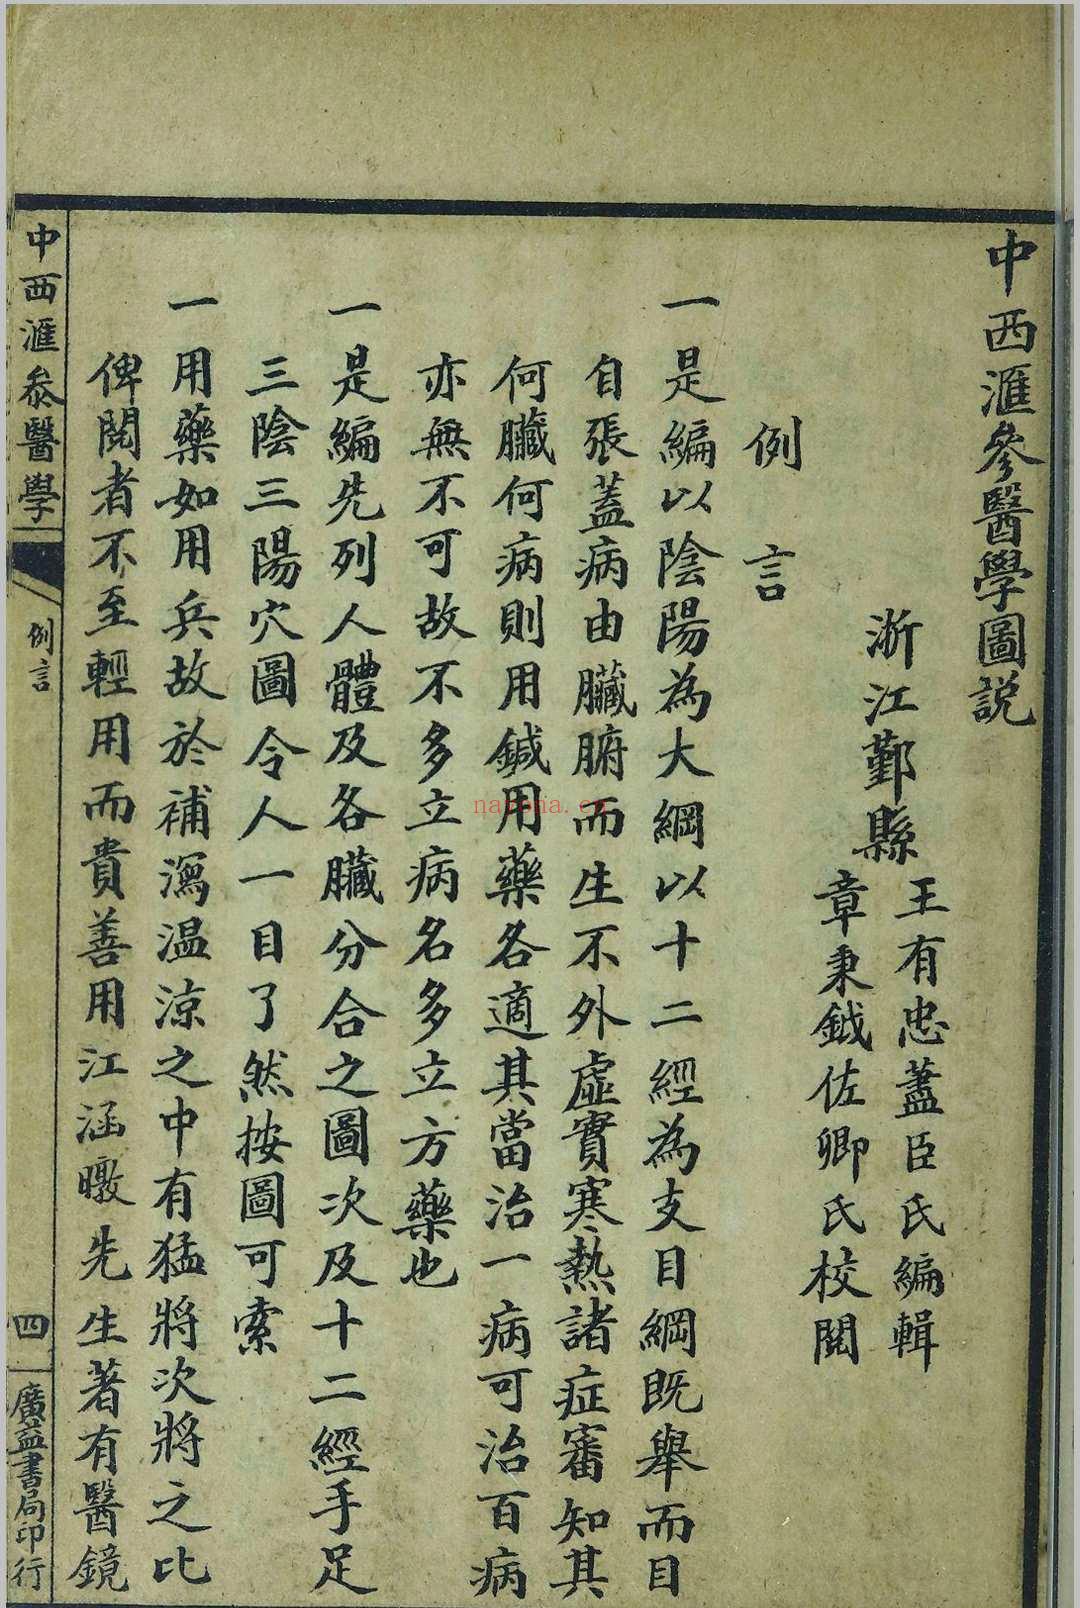 中西滙參醫學圖説
浙江鄞縣
王有忠藎臣氏編輯
章秉鉞佐卿氏校閱
例言
一是編以陰陽為大綱以十二經為支目綱既舉而目
自張蓋病由臟腑而生不外虛實寒熱諸症審知其
何臟何病則用鍼用藥各適其當治一病可治百病
亦無不可故不多立病名多立方藥也
一是編先列人體及各臟分合之圖次及十二經手足
三陰三陽穴圖令人一目了然按圖可索
一用藥如用兵故於補瀉温涼之中有猛將次將之比
俾閱者不至輕用而貴善用江涵暾先生著有醫鏡
中西滙叅醫學
例言
四
廣益書局印行